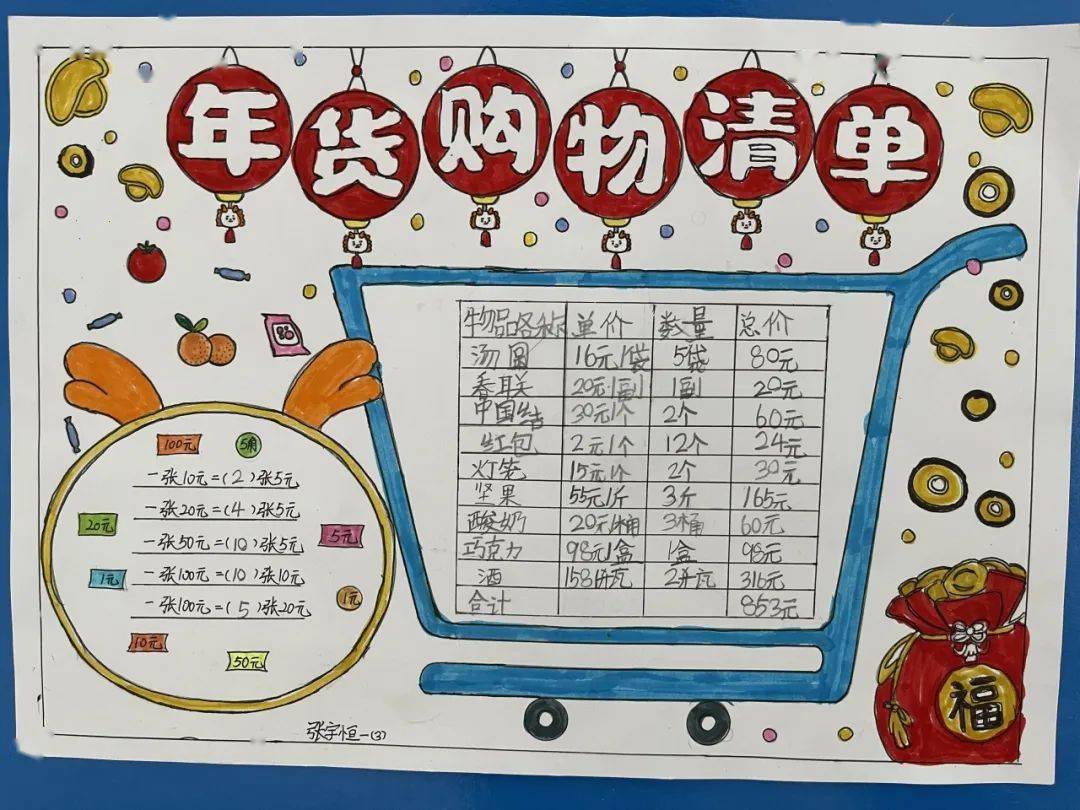 年货购物清单
物品名称 单价 数量 总价
汤圆 16元/袋 5袋 80元
春联 20元/副 1副 20元
中国结 30元/个 2个 60元
红包 2元/个 12个 24元
灯笼 15元/个 2个 30元
坚果 55元/斤 3斤 165元
酸奶 20元/桶 3桶 60元
巧克力 98元/盒 1盒 98元
酒 158/瓶 2瓶 316元
合计 853元
100元 5角
一张10元=(2)张5元
一张20元=(4)张5元
20元
5元
一张50元=(10)张5元
1元
一张100元=(10)张10元
1元
一张100元=(5)张20元
10元
50元
福
张宇恒一(3)